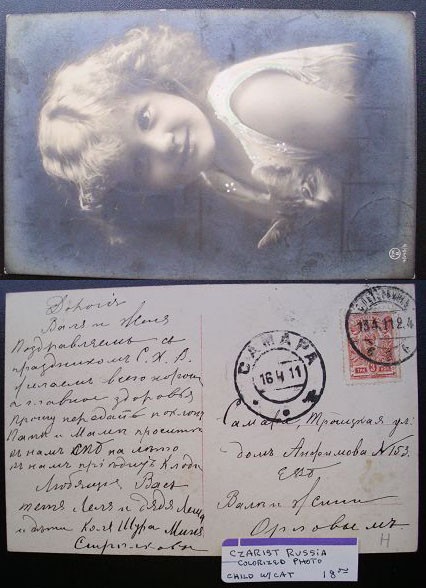 Дорогія
Валя и Женя
Поздравляемъ съ
праздникомъ С. Х. В.
желаемъ всего хорош
а главное здоровья
Прошу передать поклонъ
Папы и Мамы просить
къ намъ на лѣто
къ намъ
Любящія Васъ
тетя Леля и дядя Леша
и дѣти Коля Шура Миля
САМАРА
16 4 11
13.4.11
Самара, Троицкая ул:
домъ Анфимова №153.
ЕВБ
Валѣ и Жени
Орловымъ
H
CZARIST RUSSIA
COLORIZED PHOTO
CHILD W/CAT 18